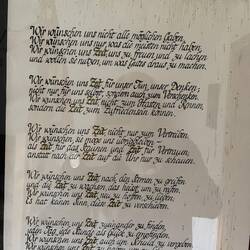 Wir wünschen uns nicht alle möglichen Gaben.
Wir wünschen uns nur, was die meisten nicht haben.
Wir wünschen uns Zeit, uns zu freuen und zu lachen
und wollen sie nutzen, um was draus zu machen.
Wir wünschen uns Zeit, für unser Tun, unser Denken,
nicht nur für uns selbst, sondern auch zum Verschenken.
Wir wünschen uns Zeit, nicht zum Hasten und Rennen,
sondern die Zeit zum Zufriedensein können.
Wir wünschen uns Zeit, nicht nur zum Vertreiben.
Wir wünschen, sie möge uns
als Zeit für das Staunen und Zeit für Vertrauen,
anstatt nach der Zeit auf die Uhr nur zu schauen.
Wir wünschen uns Zeit, nach den Sternen zu greifen
und die Zeit zu wachsen, das heißt, um zu reifen.
Wir wünschen uns Zeit, neu zu hoffen, zu lieben.
Es hat keinen Sinn, diese Zeit zu verschieben.
Wir wünschen uns Zeit, zueinander zu finden,
jeden Tag, jede Stunde als Glück zu empfinden.
Wir wünschen uns Zeit, auch um Schuld zu vergeben.